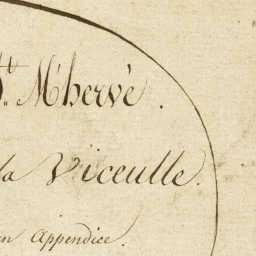 St. M'hervé.
la Viceulle.
en appendice.